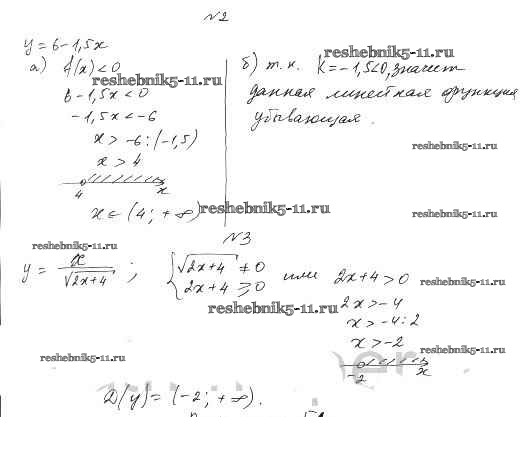 №2
y = 6 - 1,5x
а) f(x) < 0
reshebnik5-11.ru
6 - 1,5x < 0
-1,5x < -6
x > -6 : (-1,5)
x > 4
4 x
x ∈ (4; +∞)
б) т.к. K = -1,5 < 0, значит
reshebnik5-11.ru
данная линейная функция
убывающая.
reshebnik5-11.ru
reshebnik5-11.ru
reshebnik5-11.ru
№3
y = x / √(2x+4) ; { √(2x+4) ≠ 0
2x+4 ⩾ 0 или 2x+4 > 0
reshebnik5-11.ru
reshebnik5-11.ru
2x > -4
x > -4 : 2
x > -2
reshebnik5-11.ru
reshebnik5-11.ru
-2 x
D(y) = (-2; +∞).